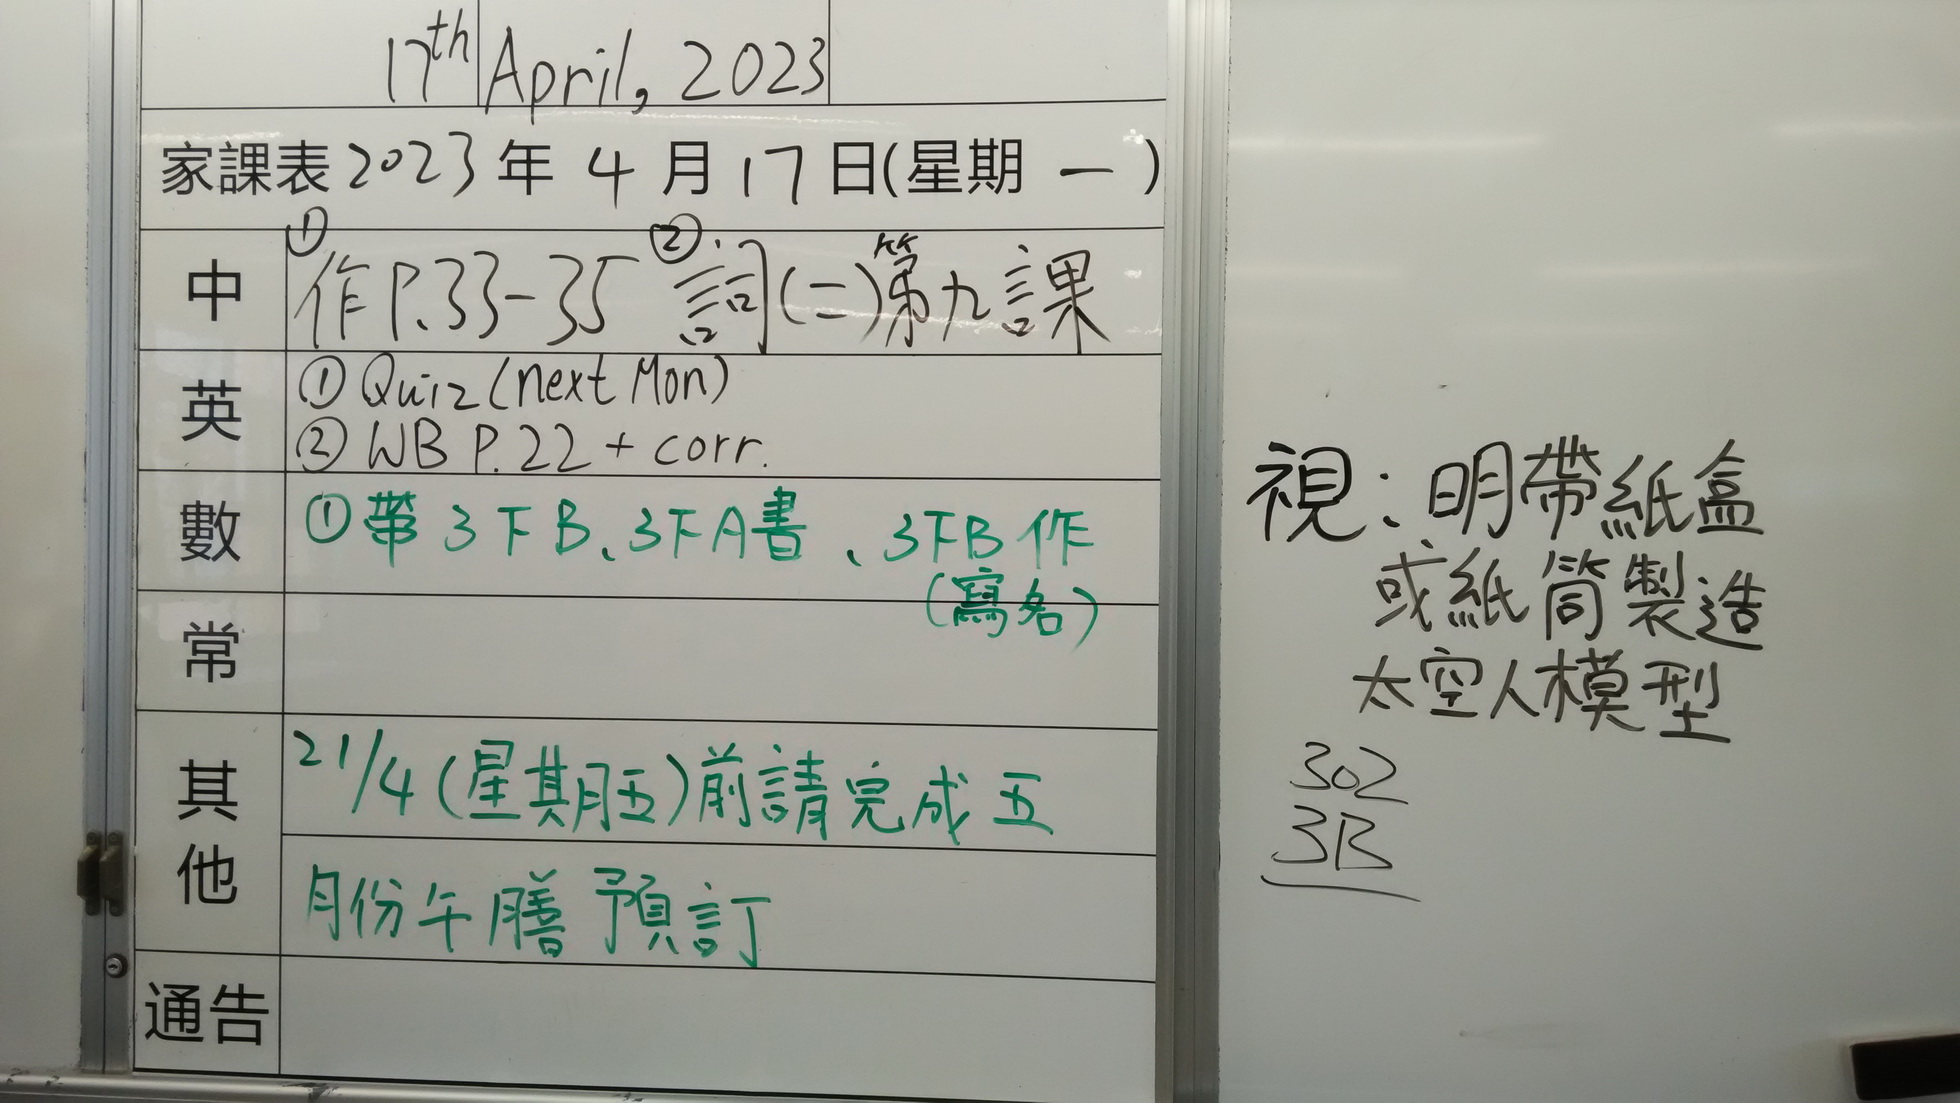 17th April, 2023
家課表 2023 年 4 月 17 日(星期 一 )
中 ①作P.33-35 ②詞(二)第九課
英 ① Quiz (next Mon)
② WB P.22 + corr.
數 ①帶3下B、3下A書、3下B作
(寫名)
常
其他 21/4 (星期五)前請完成五
月份午膳預訂
通告
視：明帶紙盒
或紙筒製造
太空人模型
302
3B